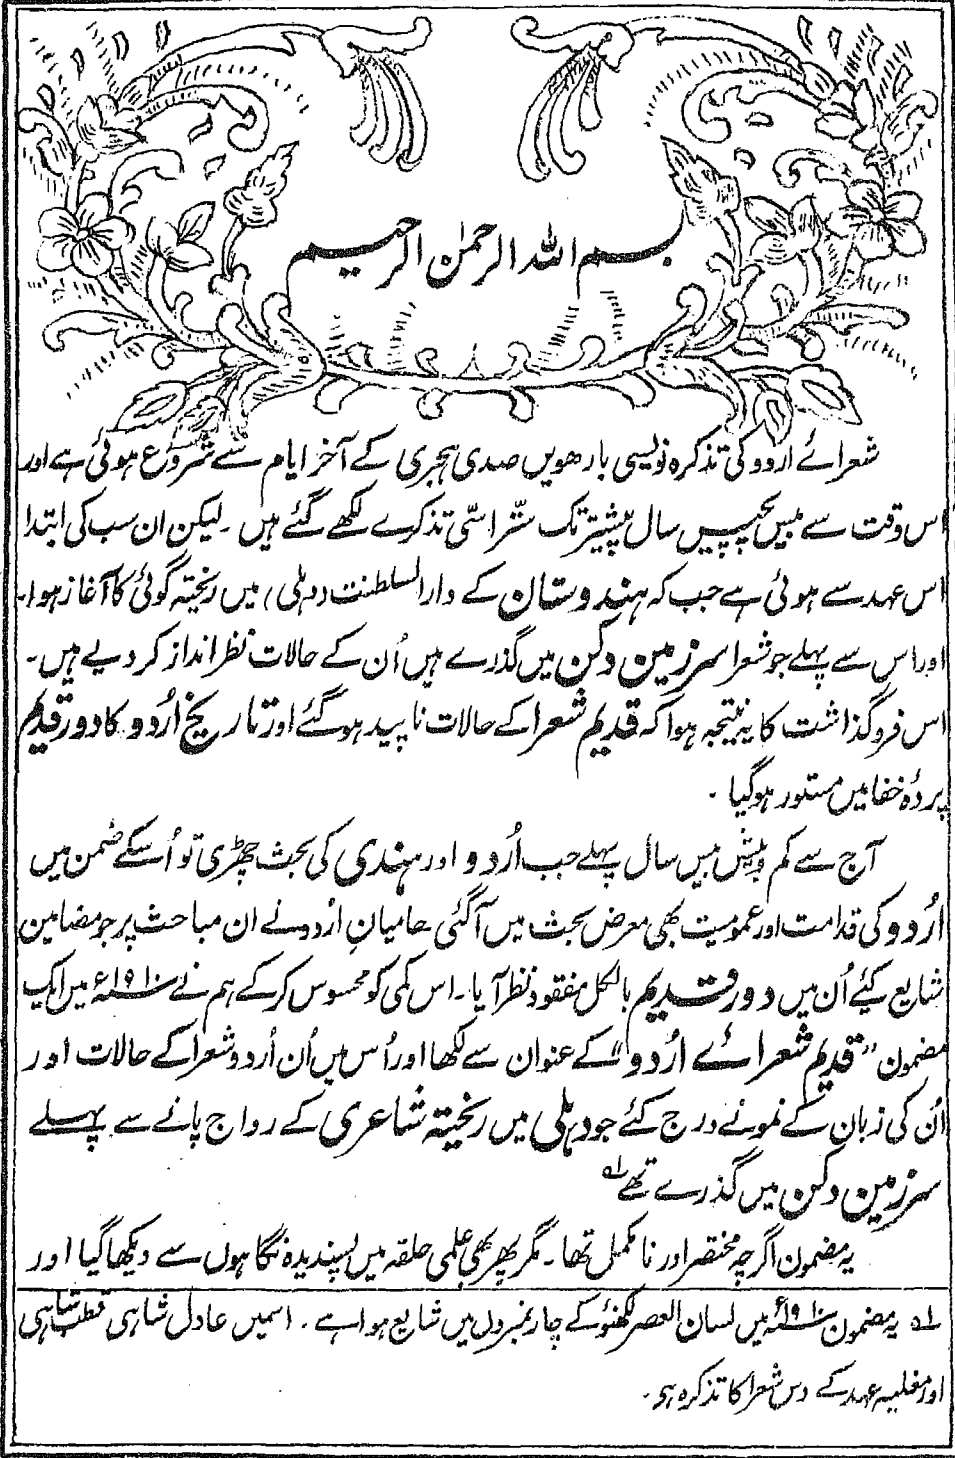 بسم اللہ الرحمٰن الرحیم
شعرائے اردو کی تذکرہ نویسی بارھویں صدی ہجری کے آخر ایام سے شروع ہوئی ہے اور
اس وقت سے بیس پچیس سال پیشتر تک ستّر اسّی تذکرے لکھے گئے ہیں۔ لیکن ان سب کی ابتدا
اس عہد سے ہوئی ہے جب کہ ہندوستان کے دار السلطنت (دہلی) میں ریختہ گوئی کا آغاز ہوا۔
اور اس سے پہلے جو شعرا سرزمین دکن میں گذرے ہیں اُن کے حالات نظر انداز کر دیے ہیں۔
اس فروگذاشت کا یہ نتیجہ ہوا کہ قدیم شعرا کے حالات ناپید ہو گئے اور تاریخ اُردو کا دور قدیم
پردۂ خفا میں مستور ہو گیا ۔
آج سے کم و بیش بیس سال پہلے جب اُردو اور ہندی کی بحث چھڑی تو اُسکے ضمن میں
اُردو کی قدامت اور عمومیت بھی معرض بحث میں آگئی حامیانِ اُردو نے ان مباحث پر جو مضامین
شایع کئے اُن میں دور قدیم بالکل مفقود نظر آیا۔ اس کمی کو محسوس کر کے ہم نے سنہ ۱۹۱۰ء میں ایک
مضمون "قدیم شعرائے اُردو" کے عنوان سے لکھا اور اُس میں اُن اُردو شعرا کے حالات اور
اُن کی زبان کے نمونے درج کئے جو دہلی میں ریختہ شاعری کے رواج پانے سے پہلے
سرزمین دکن میں گذرے تھے لہ
یہ مضمون اگرچہ مختصر اور نامکمل تھا۔ مگر پھر بھی علمی حلقہ میں پسندیدہ نگاہوں سے دیکھا گیا اور
لہ یہ مضمون سنہ ۱۹۱۰ء میں لسان العصر لکھنؤ کے چار نمبروں میں شایع ہوا ہے۔ اسمیں عادل شاہی قطب شاہی
اور مغلیہ عہد کے دس شعرا کا تذکرہ ہی۔